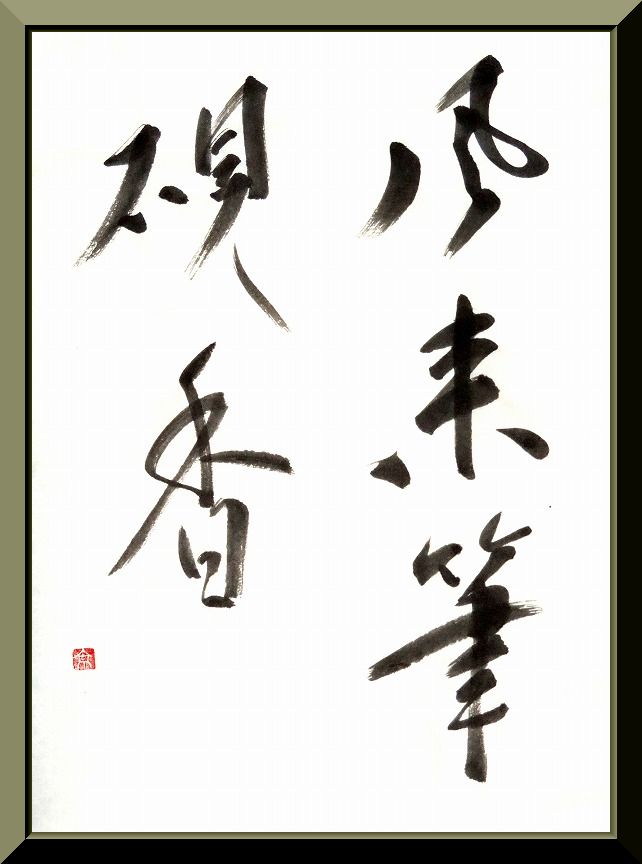 風来筆
硯香